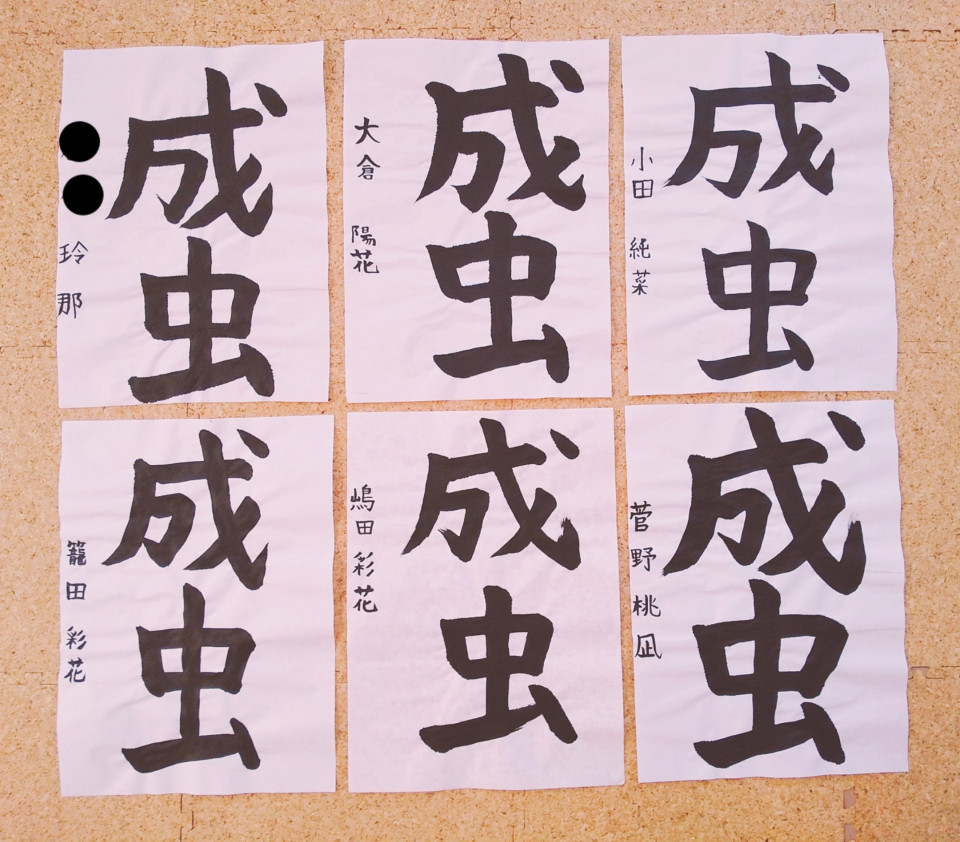 成虫
玲那
成虫
大倉 陽花
成虫
小田 純菜
成虫
籠田 彩花
成虫
嶋田 彩花
成虫
菅野 桃凪